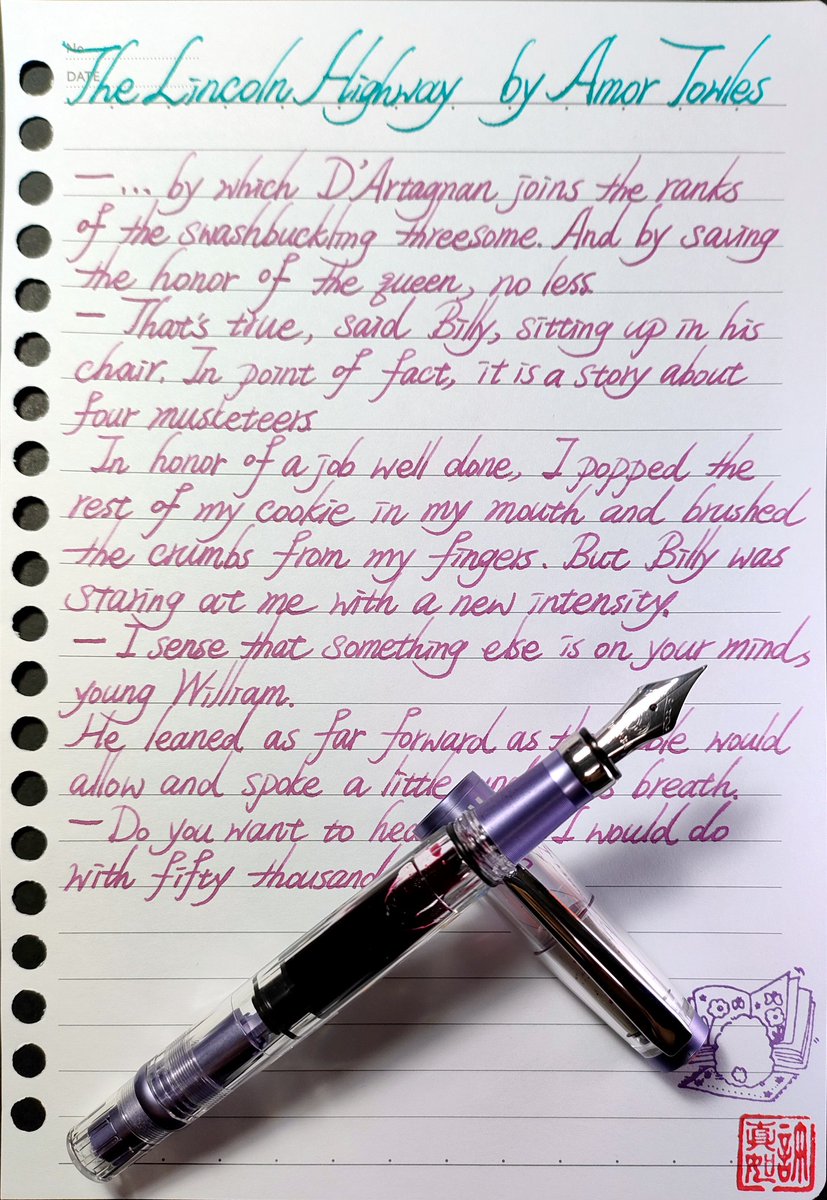 No.
DATE
The Lincoln Highway by Amor Towles
— ... by which D'Artagnan joins the ranks
of the swashbuckling threesome. And by saving
the honor of the queen, no less.
— That's true, said Billy, sitting up in his
chair. In point of fact, it is a story about
four musketeers
In honor of a job well done, I popped the
rest of my cookie in my mouth and brushed
the crumbs from my fingers. But Billy was
staring at me with a new intensity.
— I sense that something else is on your mind,
young William.
He leaned as far forward as would
allow and spoke a little breath.
— Do you want to I would do
with fifty thousand
真如